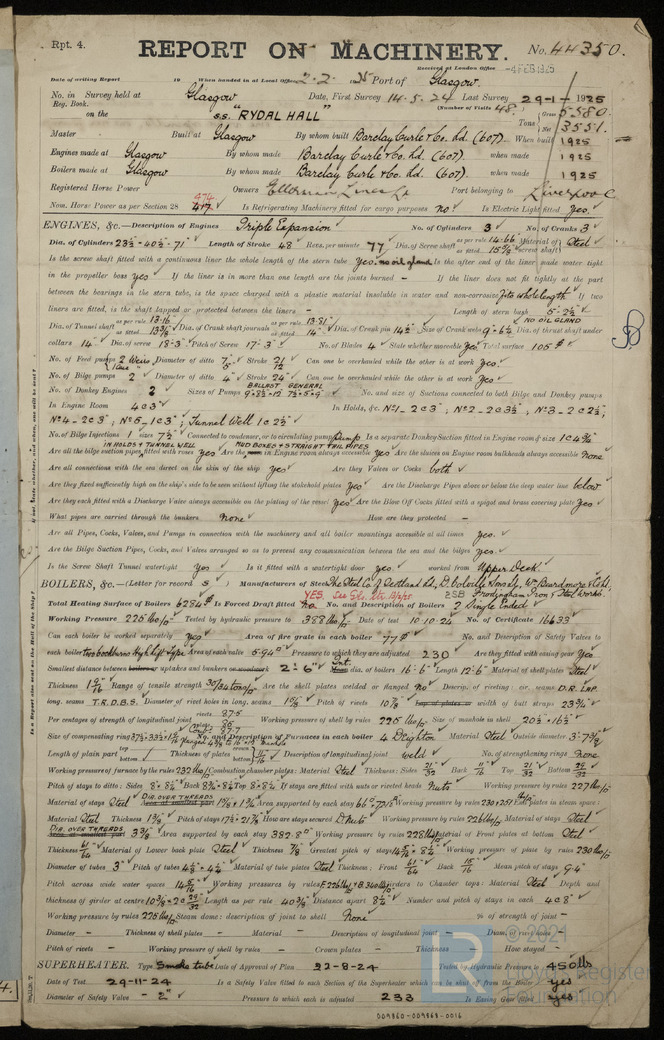 Rpt. 4.
REPORT ON MACHINERY.
No. 44350.
Received at London Office -4 FEB 1925
Date of writing Report 19 When handed in at Local Office 2.2. Port of Glasgow.
No. in Survey held at Glasgow Date, First Survey 14.5.24 Last Survey 29-1- 1925
Reg. Book. (Number of Visits 48.)
on the s.s. "RYDAL HALL" Tons Gross 5580. Net 3551.
Master Built at Glasgow By whom built Barclay Curle & Co. Ld. (607). When built 1925
Engines made at Glasgow By whom made Barclay Curle & Co. Ld. (607). when made 1925
Boilers made at Glasgow By whom made Barclay Curle & Co. Ld. (607). when made 1925
Registered Horse Power Owners Ellerman Lines Ld Port belonging to Liverpool
474
Nom. Horse Power as per Section 28 417 Is Refrigerating Machinery fitted for cargo purposes no Is Electric Light fitted yes.
ENGINES, &c.—Description of Engines Triple Expansion No. of Cylinders 3 No. of Cranks 3
Dia. of Cylinders 23½-40½-71 Length of Stroke 48 Revs. per minute 77 Dia. of Screw shaft as per rule 14.66 Material of screw shaft Steel
Is the screw shaft fitted with a continuous liner the whole length of the stern tube yes. no oil gland. Is the after end of the liner made water tight
in the propeller boss yes If the liner is in more than one length are the joints burned - If the liner does not fit tightly at the part
between the bearings in the stern tube, is the space charged with a plastic material insoluble in water and non-corrosive fits whole length If two
liners are fitted, is the shaft lapped or protected between the liners - Length of stern bush 5-2½"
NO OIL GLAND
Dia. of Tunnel shaft as per rule 13.16 Dia. of Crank shaft journals as per rule 13.81 Dia. of Crank pin 14½ Size of Crank webs 9"-6½ Dia. of thrust shaft under
collars 14" Dia. of screw 18-3" Pitch of Screw 17-3" No. of Blades 4 State whether moveable yes Total surface 105
No. of Feed pumps 2 Weirs Diameter of ditto 7" Stroke 21 Can one be overhauled while the other is at work yes.
No. of Bilge pumps 2 Diameter of ditto 4" Stroke 24" Can one be overhauled while the other is at work yes
BALLAST GENERAL
No. of Donkey Engines 2 Sizes of Pumps No. and size of Suctions connected to both Bilge and Donkey pumps
In Engine Room 4 @ 3 In Holds, &c. No 1 - 2 @ 3", No 2 - 2 @ 3½", No 3 - 2 @ 2½",
No 4 - 2 @ 3", No 5 - 1 @ 3"; Tunnel Well 1 @ 2½"
No. of Bilge Injections 1 sizes 7½" Connected to condenser, or to circulating pump Pump Is a separate Donkey Suction fitted in Engine room & size 1 @ 4¾"
IN HOLDS & TUNNEL WELL MUD BOXES & STRAIGHT TAIL PIPES
Are all the bilge suction pipes fitted with roses yes Are the in Engine room always accessible yes Are the sluices on Engine room bulkheads always accessible None
Are all connections with the sea direct on the skin of the ship yes Are they Valves or Cocks both
Are they fixed sufficiently high on the ship's side to be seen without lifting the stokehold plates yes Are the Discharge Pipes above or below the deep water line below
Are they each fitted with a Discharge Valve always accessible on the plating of the vessel yes Are the Blow Off Cocks fitted with a spigot and brass covering plate yes
What pipes are carried through the bunkers none How are they protected -
Are all Pipes, Cocks, Valves, and Pumps in connection with the machinery and all boiler mountings accessible at all times yes.
Are the Bilge Suction Pipes, Cocks, and Valves arranged so as to prevent any communication between the sea and the bilges yes.
Is the Screw Shaft Tunnel watertight yes Is it fitted with a watertight door yes worked from Upper Deck.
BOILERS, &c.—(Letter for record s) Manufacturers of Steel The Steel Co. of Scotland Ld, D. Colville & Sons Ly, Wm Beardmore & Co Ld,
YES. 2SB Frodingham Iron & Steel Works
Total Heating Surface of Boilers 6284 Is Forced Draft fitted no No. and Description of Boilers 2 Single Ended
Working Pressure 225 lbs Tested by hydraulic pressure to 388 lbs Date of test 10-10-24 No. of Certificate 16633
Can each boiler be worked separately yes Area of fire grate in each boiler 77 No. and Description of Safety Valves to
each boiler two Cockburns High lift type Area of each valve 5.94 Pressure to which they are adjusted 230 Are they fitted with easing gear yes
Smallest distance between boilers or uptakes and bunkers or woodwork 2'-6" Int. dia. of boilers 16'-6" Length 12'-6" Material of shell plates Steel
Thickness 1 9/16 Range of tensile strength 30/34 tons Are the shell plates welded or flanged no Descrip. of riveting: cir. seams D.R. LAP.
long. seams T.R.D.B.S. Diameter of rivet holes in long. seams Pitch of rivets 10⅞ width of butt straps 23¾
Per centages of strength of longitudinal joint rivets 87.5 Working pressure of shell by rules 225 lbs Size of manhole in shell 20½-16½
Size of compensating ring No. and Description of Furnaces in each boiler 4 Deighton Material Steel Outside diameter
Length of plain part top bottom Thickness of plates crown bottom Description of longitudinal joint weld No. of strengthening rings None
Working pressure of furnace by the rules 232 lbs Combustion chamber plates: Material Steel Thickness: Sides 21/32 Back 11/16 Top 21/32 Bottom 29/32
Pitch of stays to ditto: Sides 8"-8¼" Back Top If stays are fitted with nuts or riveted heads nuts Working pressure by rules 227 lbs
DIA. OVER THREADS
Material of stays Steel Area supported by each stay Working pressure by rules 230 End plates in steam space:
Material Steel Thickness Pitch of stays How are stays secured D. Nuts Working pressure by rules 226 lbs Material of stays Steel
DIA. OVER THREADS
3⅜ Area supported by each stay 382.8 Working pressure by rules 228 lbs Material of Front plates at bottom Steel
Thickness 61/64 Material of Lower back plate Steel Thickness ⅞ Greatest pitch of stays Working pressure of plate by rules 230 lbs
Diameter of tubes 3" Pitch of tubes Material of tube plates Steel Thickness: Front 61/64 Back 15/16 Mean pitch of stays 9.4
Pitch across wide water spaces Working pressures by rules F 226 lbs B. 340 lbs Girders to Chamber tops: Material Steel Depth and
thickness of girder at centre Length as per rule 40⅜ Distance apart 8¼ Number and pitch of stays in each 4 @ 8"
Working pressure by rules 225 lbs Steam dome: description of joint to shell None % of strength of joint -
Diameter - Thickness of shell plates - Material - Description of longitudinal joint - Diam. of rivet holes -
Pitch of rivets - Working pressure of shell by rules - Crown plates - Thickness - How stayed -
SUPERHEATER. Type Smoke tube Date of Approval of Plan 22-8-24 Tested by Hydraulic Pressure 450 lbs
Date of Test 29-11-24 Is a Safety Valve fitted to each Section of the Superheater which can be shut off from the Boiler yes
Diameter of Safety Valve 2" Pressure to which each is adjusted 233 Is Easing Gear fitted yes
© 2021
Lloyd's Register
Foundation
009860-009869-0016